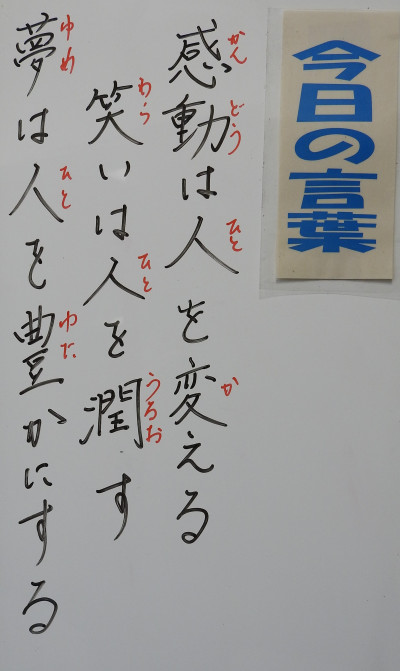 今日の言葉
感動は人を変える
かんどう ひと か
笑いは人を潤す
わら ひと うるお
夢は人を豊かにする
ゆめ ひと ゆた